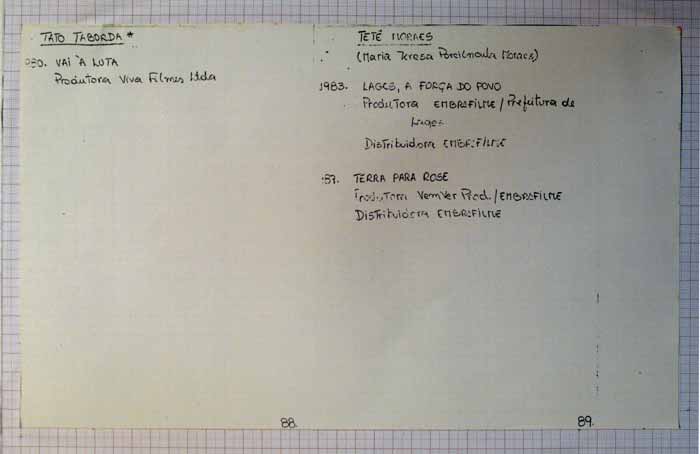 TATO TABORDA *
980. VAI À LUTA
Produtora Viva Filmes Ltda
88.
TETÉ MORAES
(Maria Teresa Porciúncula Moraes)
1983. LAGES, A FORÇA DO POVO
Produtora EMBRAFILME / Prefeitura de
Lages
Distribuidora EMBRAFILME
87. TERRA PARA ROSE
Produtora VemVer Prod./EMBRAFILME
Distribuidora EMBRAFILME
89.